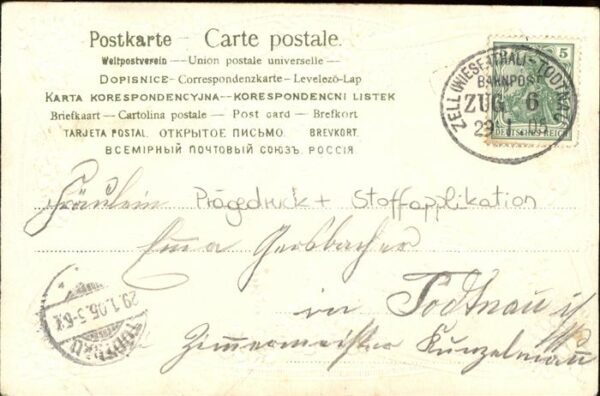 Postkarte - Carte postale.
Weltpostverein — Union postale universelle —
DOPISNICE - Correspondenzkarte - Levelező-Lap
KARTA KORESPONDENCYJNA — KORESPONDENCNI LISTEK
Briefkaart - Cartolina postale - Post card - Brefkort
TARJETA POSTAL. ОТКРЫТОЕ ПИСЬМО. BREVKORT.
ВСЕМІРНЫЙ ПОЧТОВЫЙ СОЮЗЪ. РОССІЯ.
5
ZELL (WIESENTHAL) - TODTNAU
BAHNPOST
ZUG 6
29.1.05
DEUTSCHES REICH
Fräulein Prägedruck + Stoffapplikation
Gersbacher
in Todtnau i/
Zimmermeister Kunzelmann
29.1.05.5-6N
TODTNAU